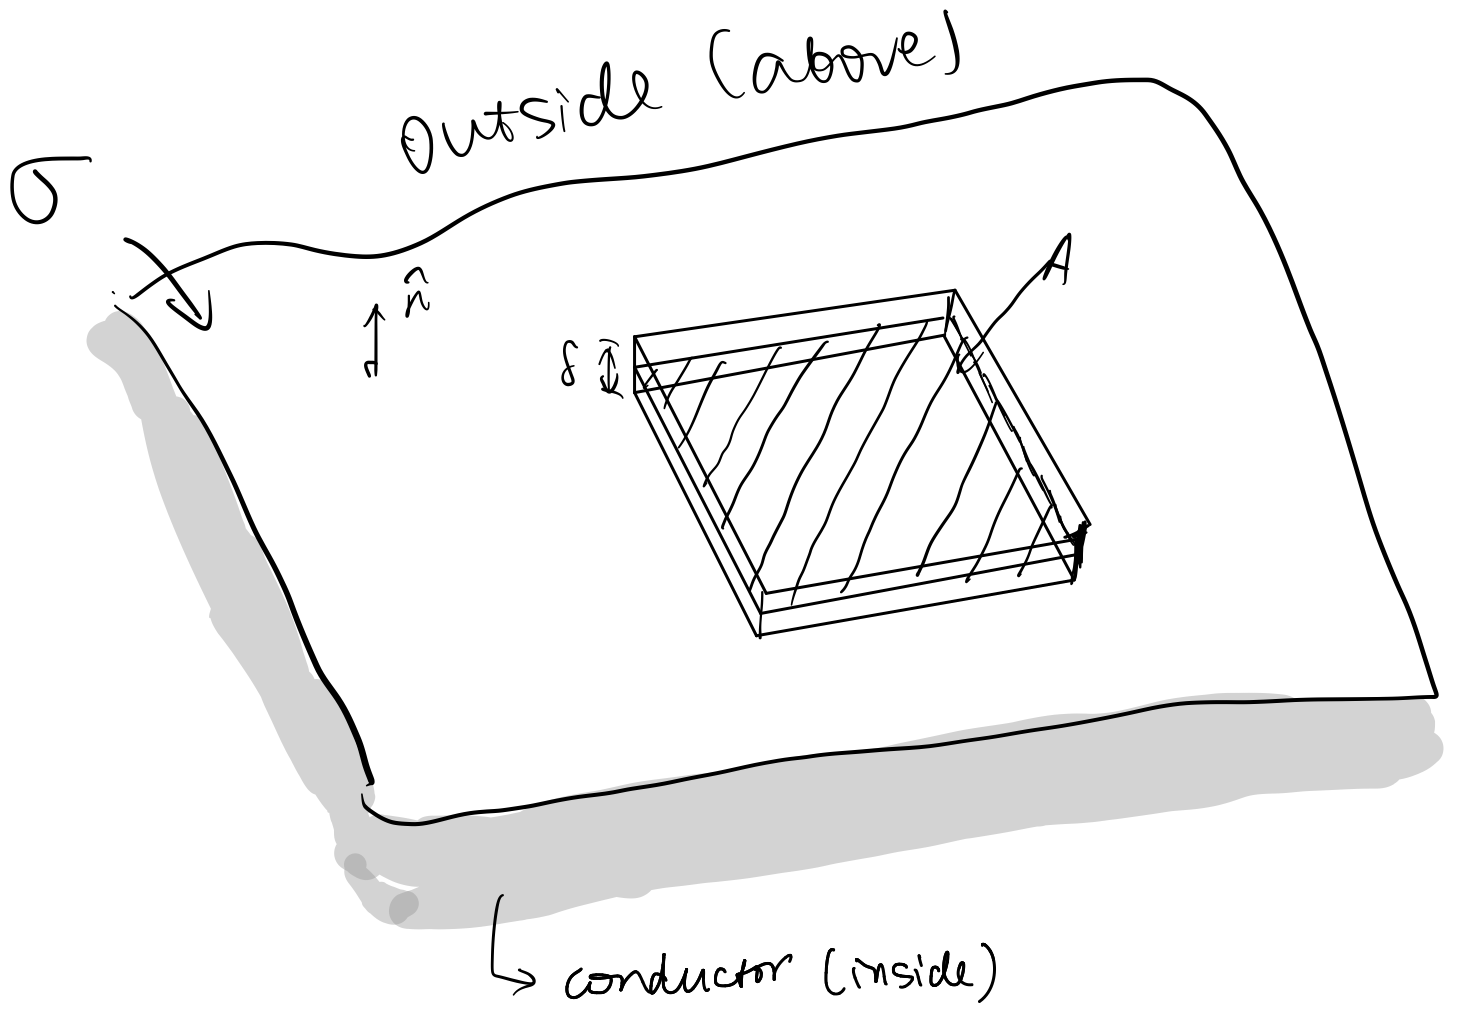 Outside (above)
σ
n̂
A
δ
conductor (inside)